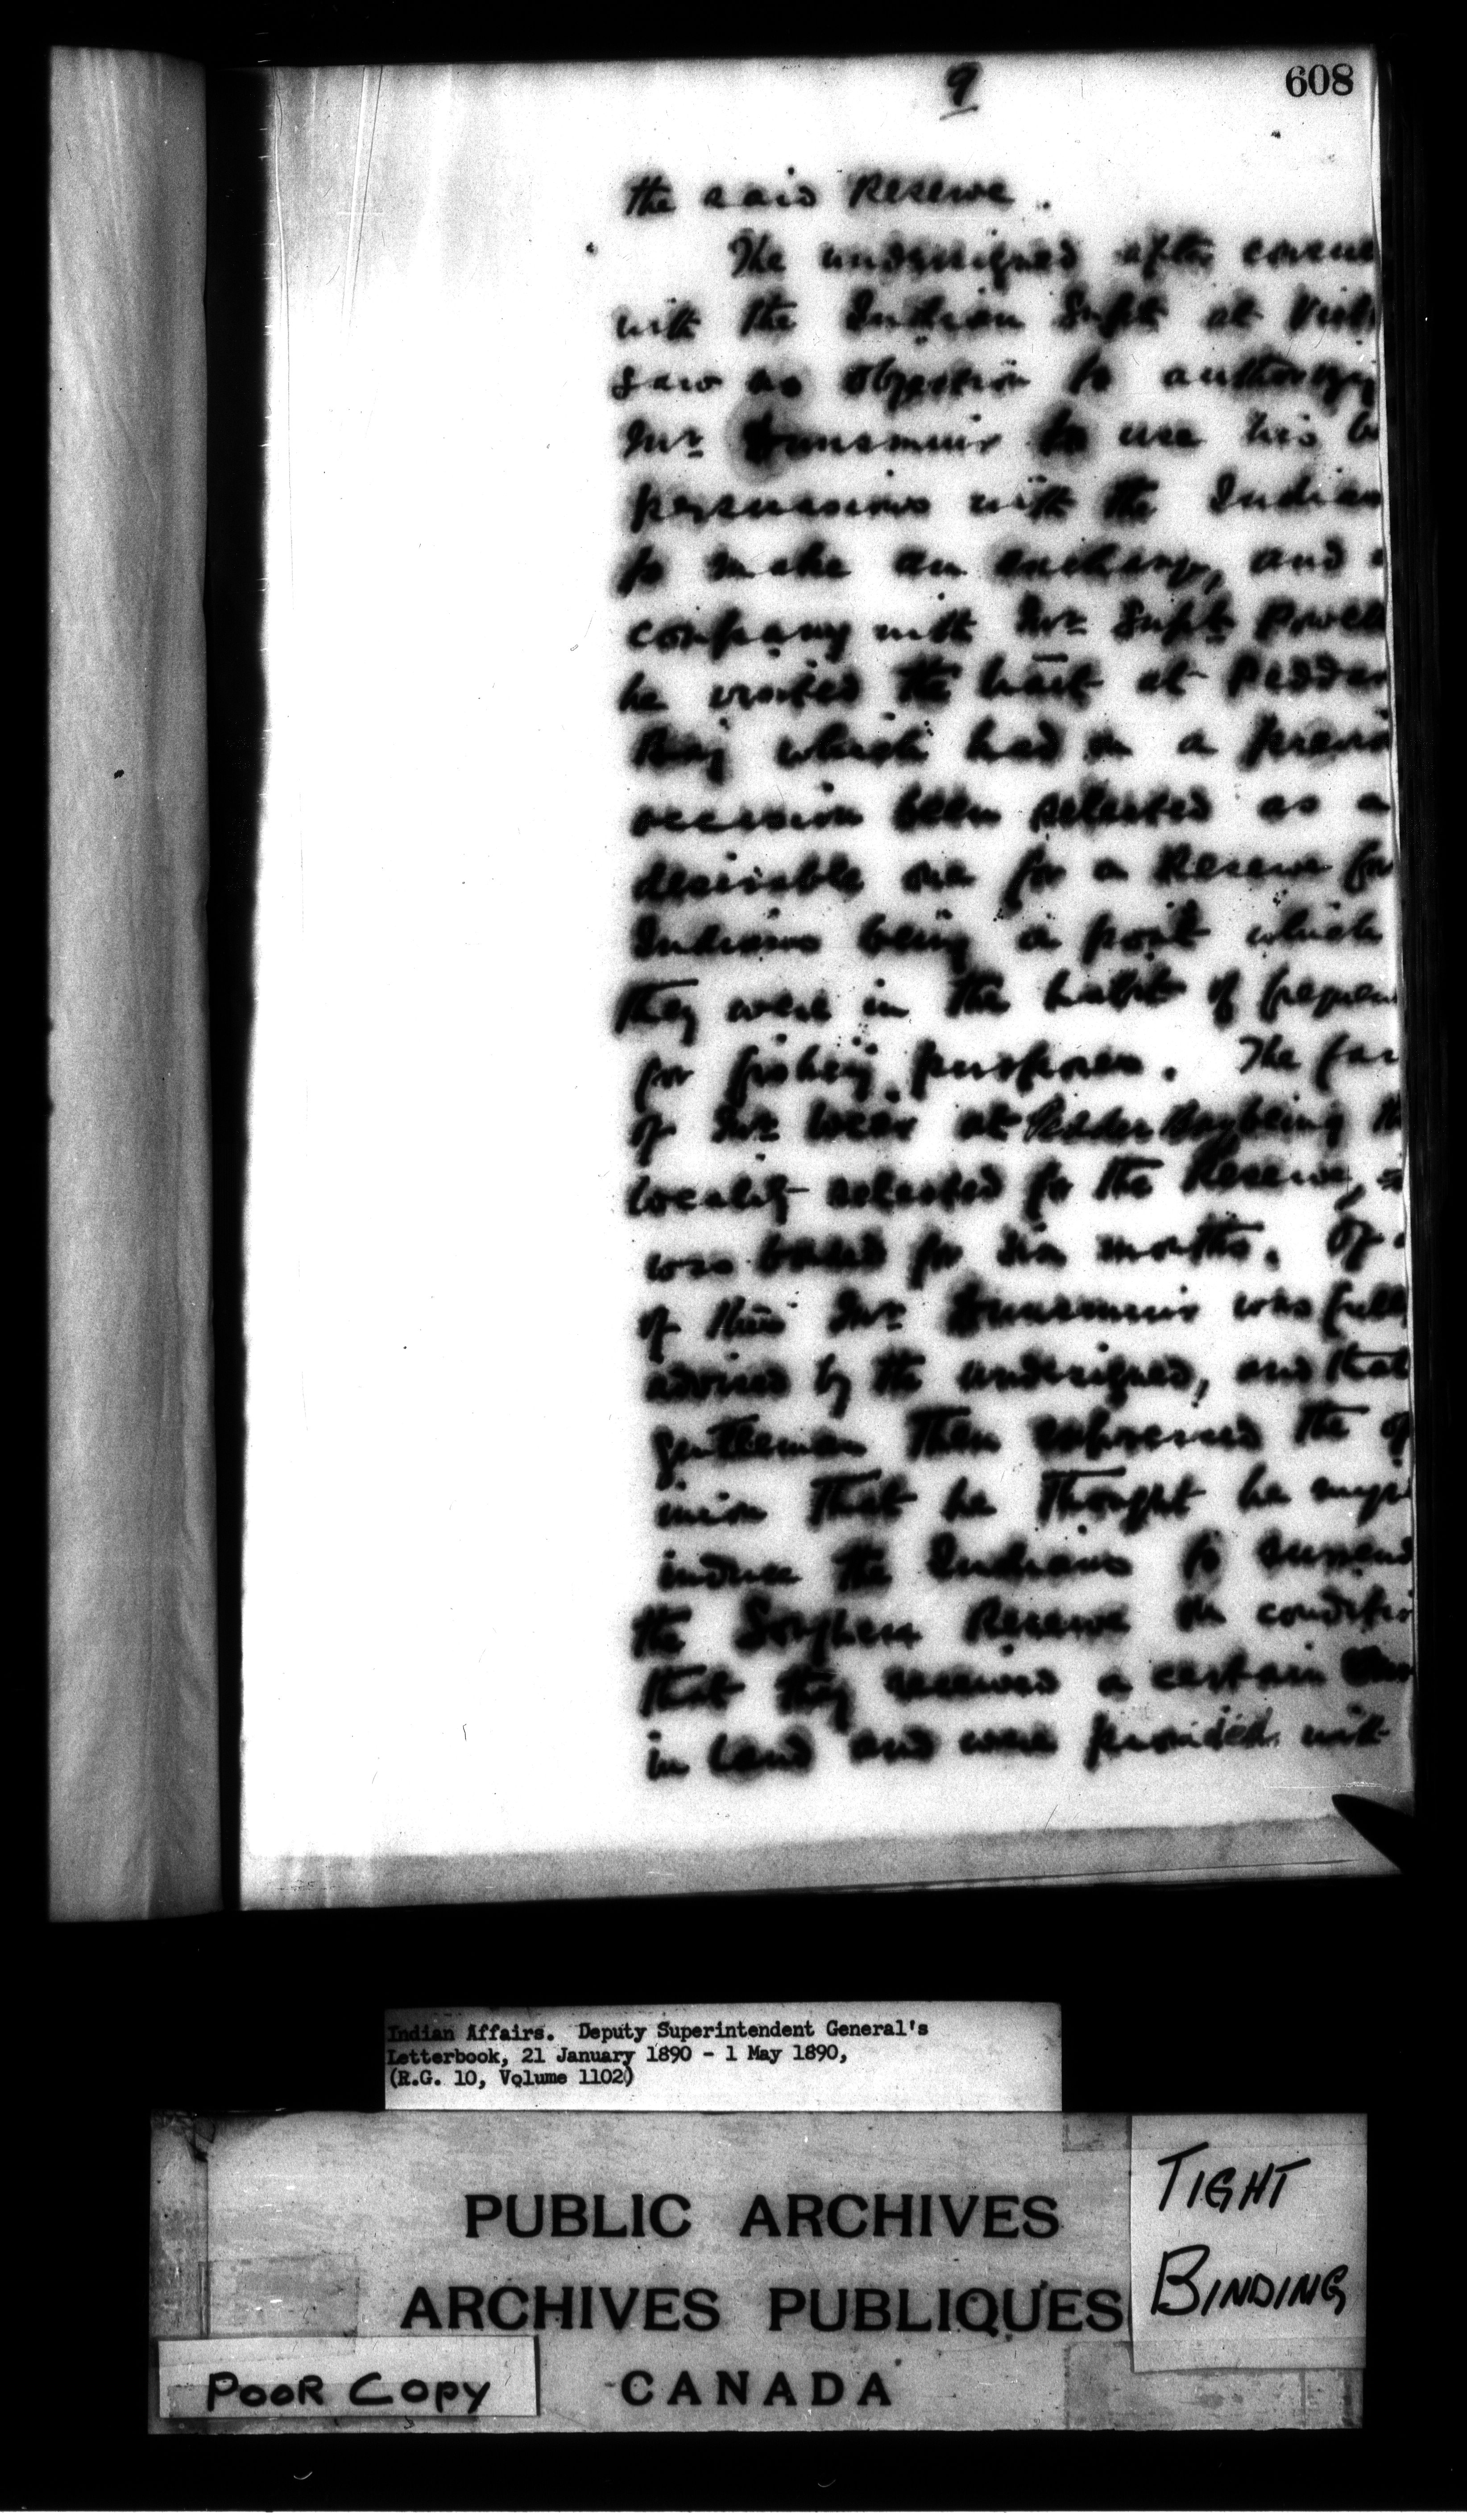 9
608
the said Reserve.
The undersigned after
with the Indian Supt at
saw no objection to
Mr Dunsmuir to use his
persuasions with the Indian
to make an exchange, and
company with Mr Supt Powell
he visited the tract at Pedder
Bay which had on a
occasion been selected as a
desirable one for a Reserve for
Indians being a point which
they were in the habit of
for fishing purposes. The
of Mr Weir at Pedder Bay being
locality selected for the Reserve,
was bonded for six months. Of
of this Mr Dunsmuir was full
advised by the undersigned, and that
gentleman then expressed the op
inion that he thought he
induce the Indians to
the Songhees Reserve on
that they received a certain
in land and were provided with
Indian Affairs. Deputy Superintendent General's
Letterbook, 21 January 1890 - 1 May 1890,
(R.G. 10, Volume 1102)
PUBLIC ARCHIVES
ARCHIVES PUBLIQUES
CANADA
TIGHT
BINDING
POOR COPY